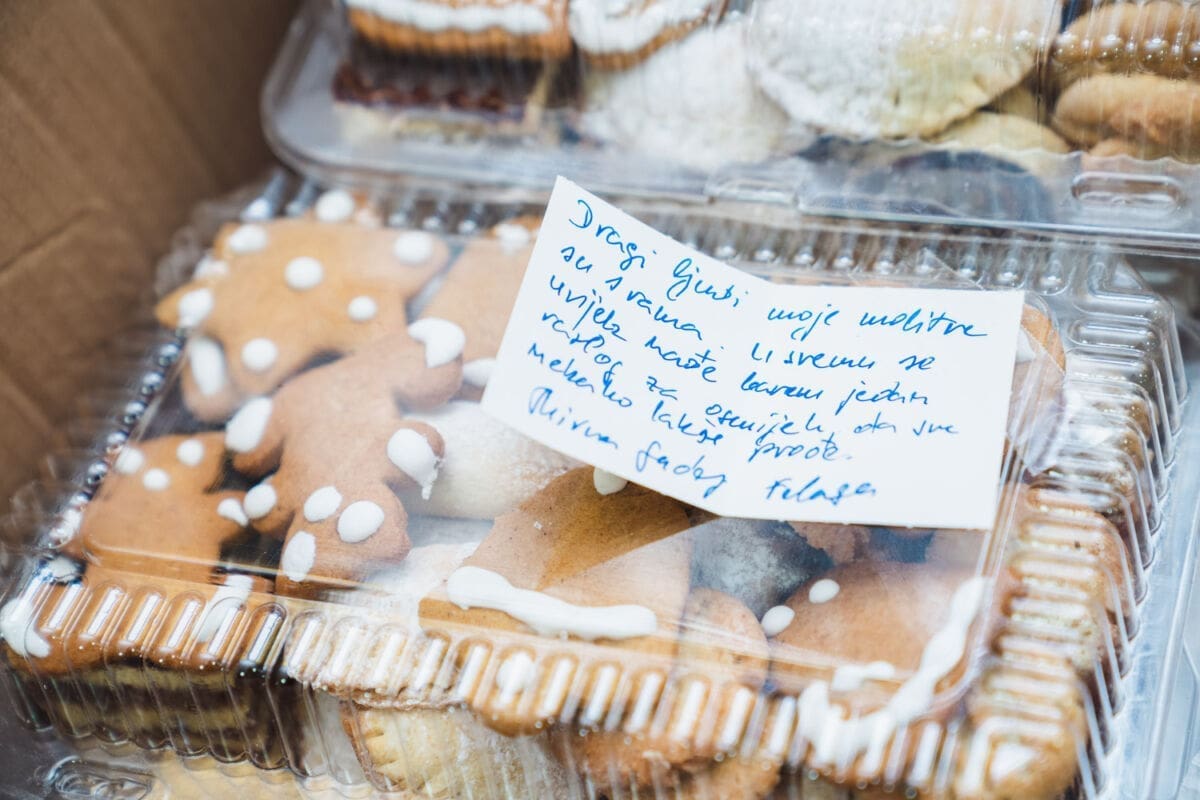 Dragi ljudi moje molitve
su s vama. U svemu se
uvijek nađe barem jedan
razlog za osmijeh, da sve
nekako lakše prođe.
Mirna